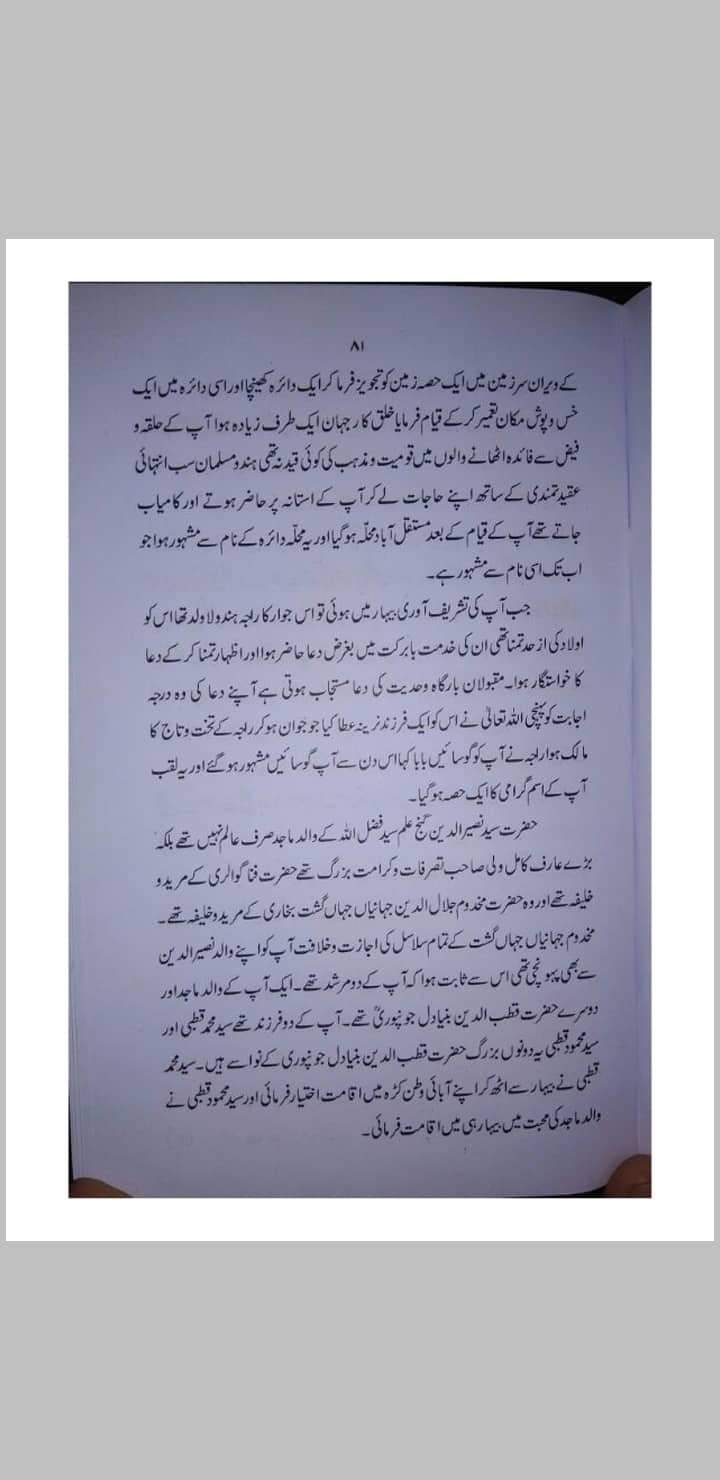 ۸۱
کے ویران سرزمین میں ایک حصہ زمین کو تجویز فرما کر ایک دائرہ کھینچا اور اسی دائرہ میں ایک
خس و پوش مکان تعمیر کر کے قیام فرمایا خلق کا رجہان ایک طرف زیادہ ہوا آپ کے حلقہ و
فیض سے فائدہ اٹھانے والوں میں قومیت و مذہب کی کوئی قید نہ تھی ہندو مسلمان سب انتہائی
عقیدتمندی کے ساتھ اپنے حاجات لے کر آپ کے استانہ پر حاضر ہوتے اور کامیاب
جاتے تھے آپ کے قیام کے بعد مستقل آباد محلّہ ہو گیا اور یہ محلّہ دائرہ کے نام سے مشہور ہوا جو
اب تک اسی نام سے مشہور ہے۔
جب آپ کی تشریف آوری بیہار میں ہوئی تو اس جوار کا راجہ ہندو لا ولد تھا اس کو
اولاد کی از حد تمنا تھی ان کی خدمت بابرکت میں بغرض دعا حاضر ہوا اور اظہار تمنا کر کے دعا
کا خواستگار ہوا۔ مقبولان بارگاہ وحدیت کی دعا مستجاب ہوتی ہے آپنے دعا کی وہ درجہ
اجابت کو پہنچی اللہ تعالیٰ نے اس کو ایک فرزند نرینہ عطا کیا جو جوان ہو کر راجہ کے تخت و تاج کا
مالک ہوا راجہ نے آپ کو گوسائیں بابا کہا اس دن سے آپ گوسائیں مشہور ہو گئے اور یہ لقب
آپ کے اسم گرامی کا ایک حصہ ہو گیا۔
حضرت سید نصیر الدین گنج علم سید فضل اللہ کے والد ماجد صرف عالم نہیں تھے بلکہ
بڑے عارف کامل ولی صاحب تصرفات و کرامت بزرگ تھے حضرت فنا گوالری کے مرید و
خلیفہ تھے اور وہ حضرت مخدوم جلال الدین جہانیاں جہاں گشت بخاری کے مرید و خلیفہ تھے۔
مخدوم جہانیاں جہاں گشت کے تمام سلاسل کی اجازت و خلافت آپ کو اپنے والد نصیر الدین
سے بھی پہونچی تھی اس سے ثابت ہوا کہ آپ کے دو مرشد تھے۔ ایک آپ کے والد ماجد اور
دوسرے حضرت قطب الدین بنیادل جونپوریؒ تھے۔ آپ کے دو فرزند تھے سید محمد قطبی اور
سید محمود قطبی یہ دونوں بزرگ حضرت قطب الدین بنیادل جونپوری کے نواسے ہیں۔ سید محمد
قطبی نے بیہار سے اٹھ کر اپنے آبائی وطن کڑہ میں اقامت اختیار فرمائی اور سید محمود قطبی نے
والد ماجد کی محبت میں بیہار ہی میں اقامت فرمائی۔